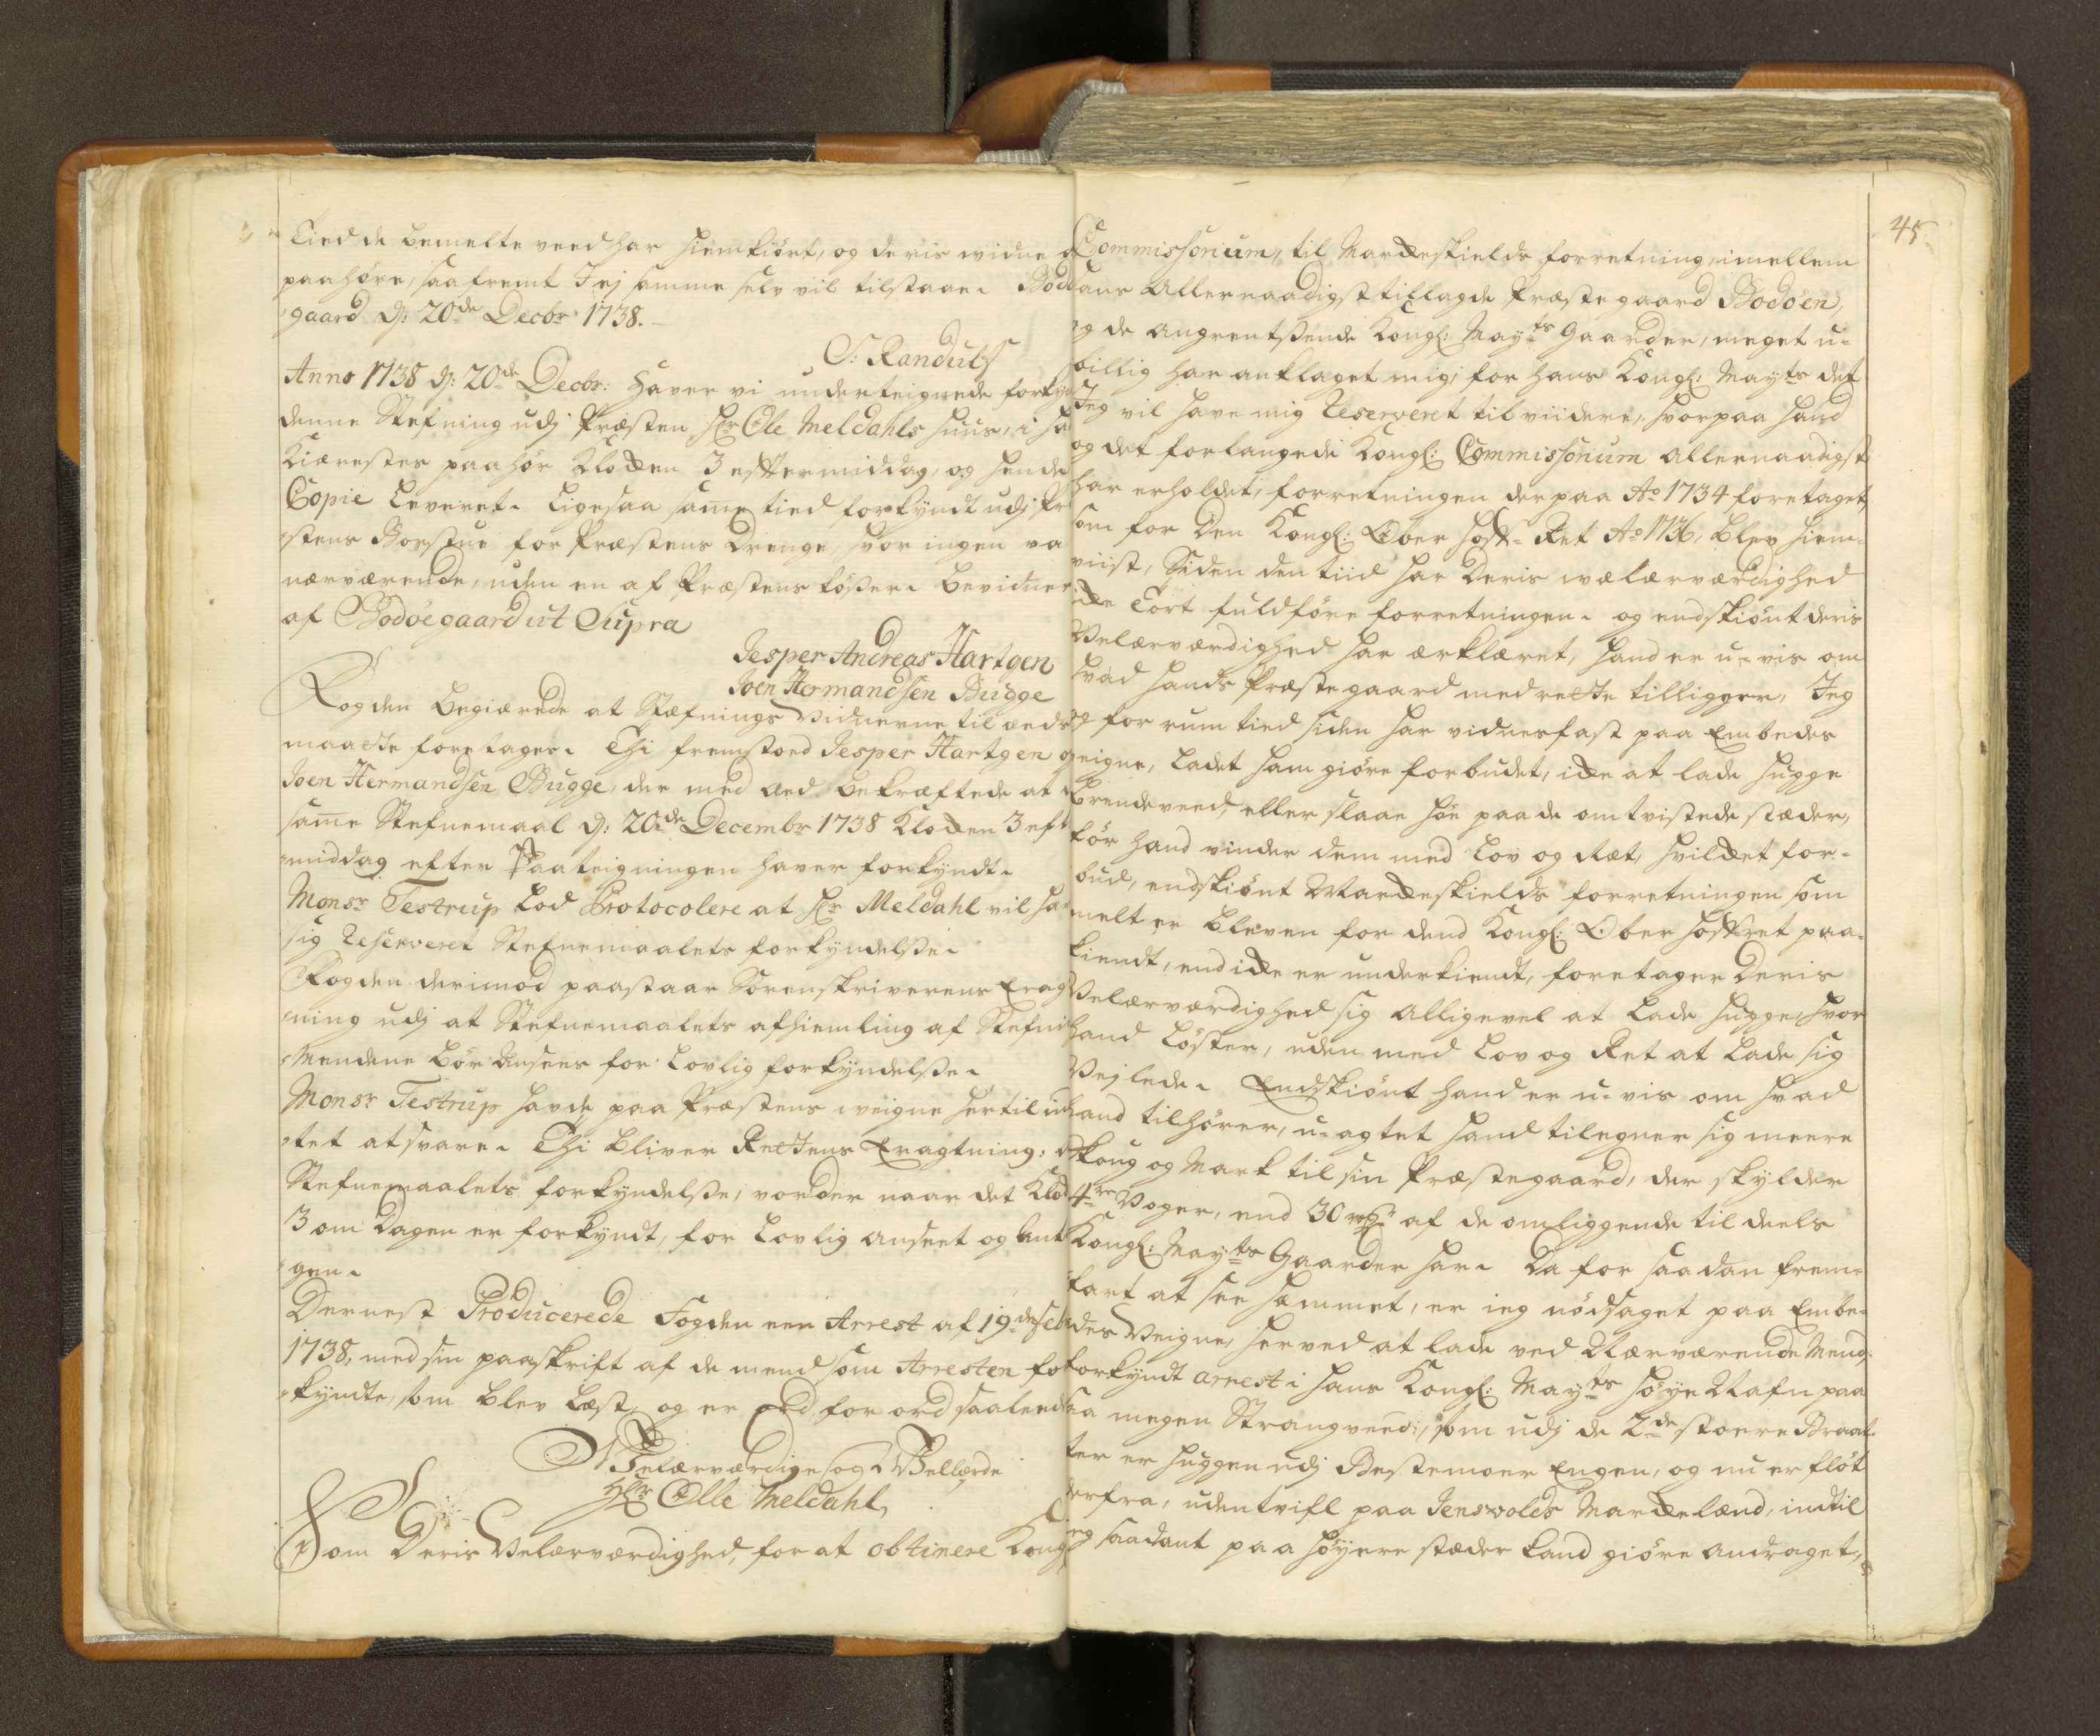 Tiid de bemelte veed har hiemkiört, og deris vidne
paahöre, saafremt I ej samme selv vil tilstaae. Bod
gaard d: 20de Decbr 1738.
S: Randulf
Anno 1738 d: 20de Decbr: haver vi underteignede forkyn
denne Stefning udj Præsten Hr Ole Meldahls huus, i ha
Kiærestes paahör Klocken 3 efftermiddag, og hende
Copie leveret. Ligesaa same tied forkyndt udj Præ
stens Borstue for Præstens Drenge, hvor ingen va
nærværende, uden en af Præstens töser. bevidner
af Bodöegaard ut Supra
Jesper Andreas Hartgen
Joen Hermandsen Bugge
Fogden begiærede at Stefnings Vidnerne til æeds
maatte foretages. Thi fremstoed Jesper Hartgen og
Joen Hermandsen Bugge, der med æed bekræftede at
same Stefnemaal d: 20de Decembr 1738 Klocken 3 eft
middag efter Paateigningen haver forkyndt.
Monsr Testrup lod Protocolere at Hr Meldahl vil ha
sig Reserveret Stefnemaalets forkyndelse.
Fogden derimod paastaar Sorenskriverens Erag
ning udj at Stefnemaalets afhiemling af Stefni
Mendene bör ansees for lovlig forkyndelse.
Monsr Testrup havde paa Præstens veigne hertil in
tet at svare. Thi bliver Rettens Eragtning, at
Stefnemaalets forkyndelse, vorder naar det Klock
3 om Dagen er forkyndt, for lovlig anseet og ant
gen.
Dernest Producerede Fogden een Arrest af 19de Feb
1738, med sin paaskrift af de mend som Arresten for
kyndte, som blev læst, og er ord for ord saalend
Velærværdige og Vellærde
Hr Olle Meldahl,
Som Deris Velærværdighed, for at obtinere Kongl
45
Commissorium, til Markeskields forretning, imellem
hans Allernaadigst tillagde Præstegaard Bodöen,
og de angrentsende Kongl: Mayts Gaarder, meget u-
billig har anklaget mig, for hans Kongl: Mayts det
Jeg vil have mig Reserveret til viidere, hvorpaa hand
og det forlangede Kongl: Commissorium allernaadigst
har erholdet, forretningen derpaa Ao 1734 foretaget,
som for Den Kongl: Ober Hoff-Ret Ao 1736, blev hiem-
viist, Siden den tiid har Deris velærværdighed
icke tort fuldföre forretningen. og endskiönt deris
Velærværdighed har ærklæret, hand er u-vis om
hvad hands Præstegaard med rette tilligger, Jeg
for rum tied siden har vidnesfast paa Embedes
veigne, ladet ham giöre forbudet, icke at lade hugge
brendeveed, eller slaae höe paa de omtvistede stæder,
för hand vinder dem med Lov og Ræt, hvilcket for-
bud, endskiönt Markeskields forretningen som
melt er bleven for dend Kongl: Ober Hoffret paa-
kiendt, end icke er underkiendt, foretager Deris
Velærværdighed sig alligevel at lade hugge, hvor
hand löster, uden med Lov og Ret at lade sig
Vejlede. Endskiönt hand er u-vis om hvad
hand tilhörer, u-agtet hand tilegner sig meere
Skoug og Mark til sin Præstegaard, der skylder
4re Voger, end 30 af de omliggende til deels
Kongl: Mayts Gaarder har. Da for saadan frem-
fart at see hæmmet, er ieg nödsaget paa Embe-
des Veigne, herved at lade ved Nærværende Mend,
forkyndt arrest i hans Kongl: Mayts höye Nafn paa
saa megen Strangveed, som udj de 2de stoere Braat-
ter er huggen udj Bestemoer Engen, og nu er flöt
derfra, uden tvifl paa Jensvolds Markeland, indtil
ieg saadant paa höyere stæder kand giöre andraget,